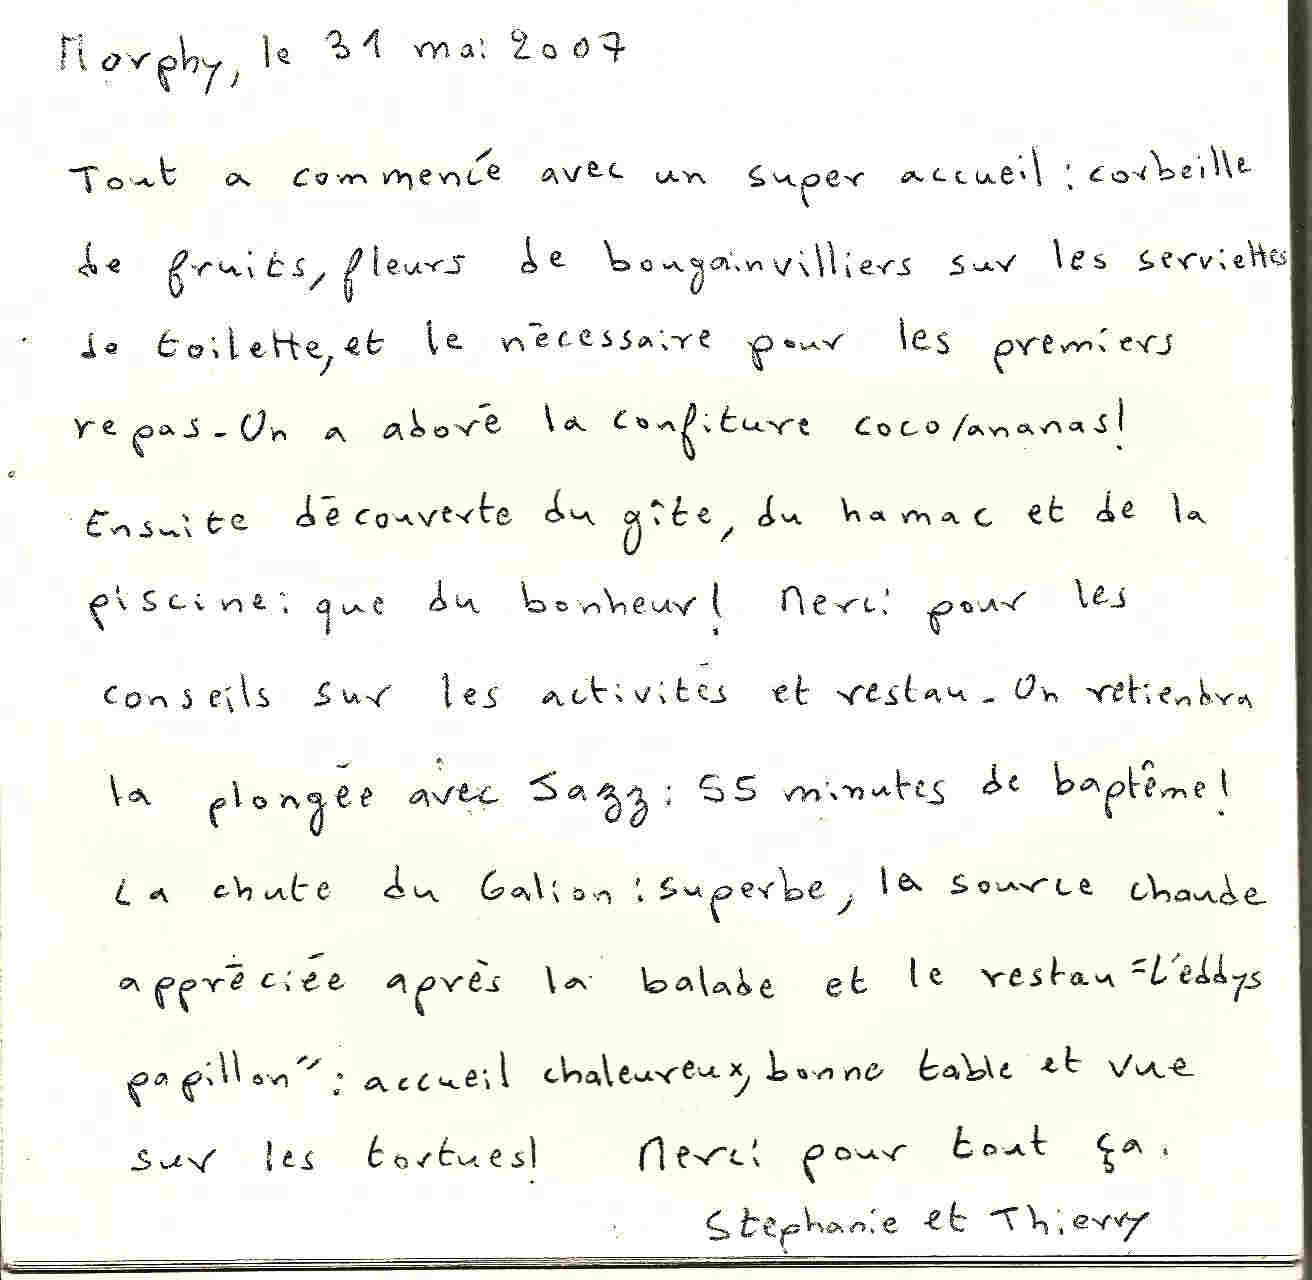 Morphy, le 31 mai 2007
Tout a commencé avec un super accueil : corbeille
de fruits, fleurs de bougainvilliers sur les serviettes
de toilette, et le nécessaire pour les premiers
repas. On a adoré la confiture coco/ananas!
Ensuite découverte du gîte, du hamac et de la
piscine : que du bonheur! Merci pour les
conseils sur les activités et restau. On retiendra
la plongée avec Jazz : 55 minutes de baptême!
La chute du Galion : superbe, la source chaude
appréciée après la balade et le restau "L'eddys
papillon" : accueil chaleureux, bonne table et vue
sur les tortues! Merci pour tout ça.
Stephanie et Thierry